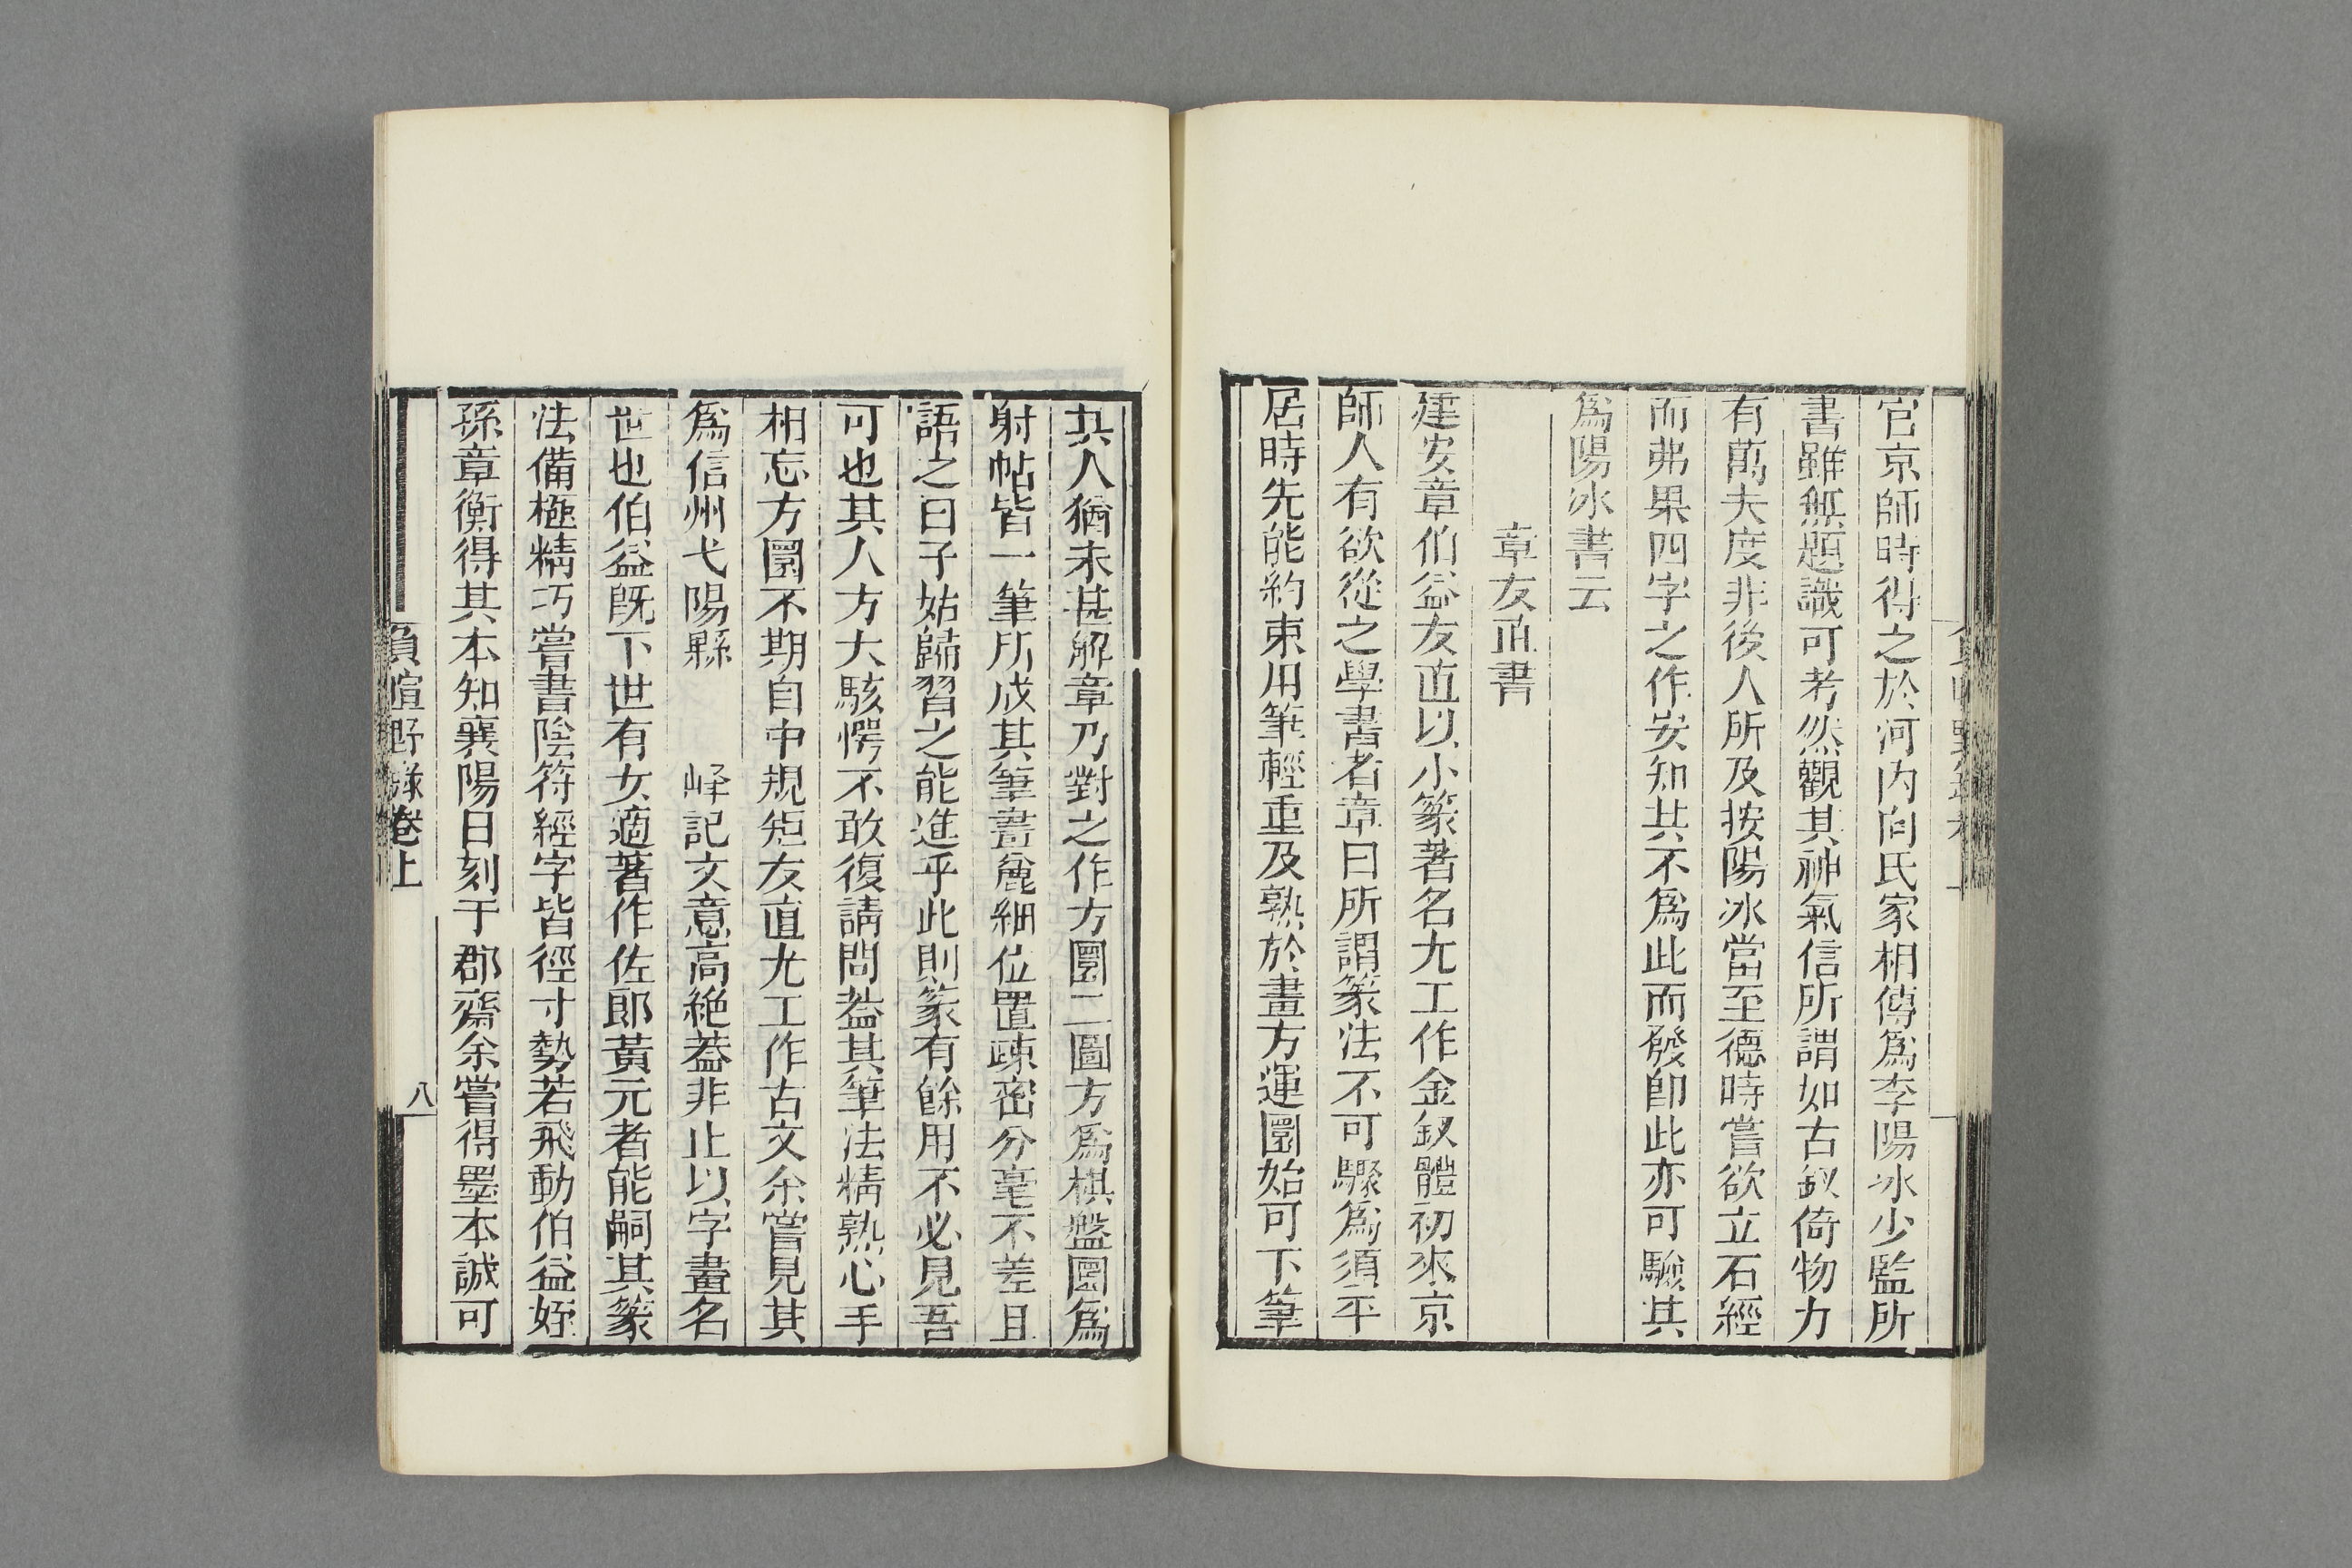 官京師時得之於河内向氏家相傳爲李陽冰少監所
書雖無題識可考然觀其神氣信所謂如古釵倚物力
有萬夫度非後人所及按陽冰當至德時嘗欲立石經
而弗果四字之作安知其不爲此而發即此亦可驗其
爲陽冰書云
章友直書
建安章伯益友直以小篆著名尤工作金釵體初來京
師人有欲從之學書者章曰所謂篆法不可驟爲須平
居時先能約束用筆輕重及熟於畫方運圓始可下筆
其人猶未甚解章乃對之作方圓二圖方爲棋盤圓爲
射帖皆一筆所成其筆畫麄細位置疎密分毫不差且
語之曰子姑歸習之能進乎此則篆有餘用不必見吾
可也其人方大駭愕不敢復請問葢其筆法精熟心手
相忘方圓不期自中規矩友直尤工作古文余嘗見其
爲信州弋陽縣 峄記文意高絶葢非止以字畫名
世也伯益既下世有女適著作佐郎黄元者能嗣其篆
法備極精巧嘗書陰符經字皆徑寸勢若飛動伯益姪
孫章衡得其本知襄陽日刻于郡齋余嘗得墨本誠可
負暄野錄卷上
八